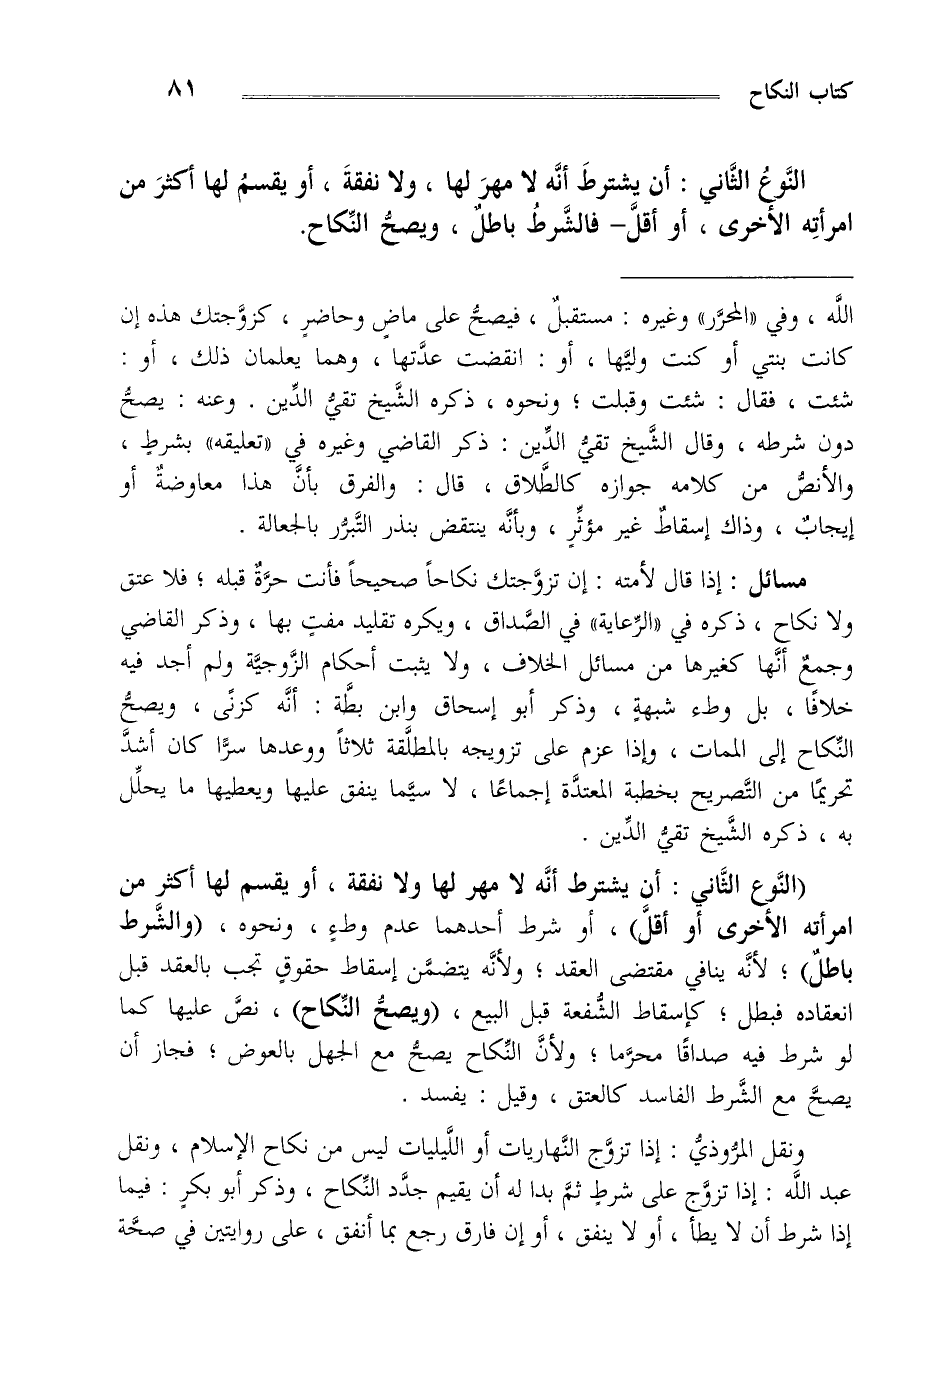 كتاب النكاح ٨١
النَّوعُ الثَّاني : أن يشترطَ أنَّه لا مهرَ لها ، ولا نفقةَ ، أو يقسمُ لها أكثرَ من
امرأتِه الأخرى ، أو أقلَّ– فالشَّرطُ باطلٌ ، ويصحُّ النِّكاح.
اللَّه ، وفي «المحرَّر» وغيره : مستقبلٌ ، فيصحُّ على ماضٍ وحاضرٍ ، كزوَّجتك هذه إن
كانت بنتي أو كنت وليَّها ، أو : انقضت عدَّتها ، وهما يعلمان ذلك ، أو :
شئت ، فقال : شئت وقبلت ؛ ونحوه ، ذكره الشَّيخ تقيُّ الدِّين . وعنه : يصحُّ
دون شرطه ، وقال الشَّيخ تقيُّ الدِّين : ذكر القاضي وغيره في «تعليقه» بشرطٍ ،
والأنصُّ من كلامه جوازه كالطَّلاق ، قال : والفرق بأنَّ هذا معاوضةٌ أو
إيجابٌ ، وذاك إسقاطٌ غير مؤثِّرٍ ، وبأنَّه ينتقض بنذر التَّبرُّر بالجعالة .
مسائل : إذا قال لأمته : إن تزوَّجتك نكاحاً صحيحاً فأنت حرَّةٌ قبله ؛ فلا عتق
ولا نكاح ، ذكره في «الرِّعاية» في الصَّداق ، ويكره تقليد مفتٍ بها ، وذكر القاضي
وجمعٌ أنَّها كغيرها من مسائل الخلاف ، ولا يثبت أحكام الزَّوجيَّة ولم أجد فيه
خلافًا ، بل وطء شبهةٍ ، وذكر أبو إسحاق وابن بطَّة : أنَّه كزنًى ، ويصحُّ
النِّكاح إلى الممات ، وإذا عزم على تزويجه بالمطلَّقة ثلاثاً ووعدها سرًّا كان أشدَّ
تحريمًا من التَّصريح بخطبة المعتدَّة إجماعًا ، لا سيَّما ينفق عليها ويعطيها ما يحلِّل
به ، ذكره الشَّيخ تقيُّ الدِّين .
(النَّوع الثَّاني : أن يشترط أنَّه لا مهر لها ولا نفقة ، أو يقسم لها أكثر من
امرأته الأخرى أو أقلَّ) ، أو شرط أحدهما عدم وطءٍ ، ونحوه ، (والشَّرط
باطلٌ) ؛ لأنَّه ينافي مقتضى العقد ؛ ولأنَّه يتضمَّن إسقاط حقوقٍ تجب بالعقد قبل
انعقاده فبطل ؛ كإسقاط الشُّفعة قبل البيع ، (ويصحُّ النِّكاح) ، نصَّ عليها كما
لو شرط فيه صداقًا محرَّما ؛ ولأنَّ النِّكاح يصحُّ مع الجهل بالعوض ؛ فجاز أن
يصحَّ مع الشَّرط الفاسد كالعتق ، وقيل : يفسد .
ونقل المرُّوذيُّ : إذا تزوَّج النَّهاريات أو اللَّيليات ليس من نكاح الإسلام ، ونقل
عبد اللَّه : إذا تزوَّج على شرطٍ ثمَّ بدا له أن يقيم جدَّد النِّكاح ، وذكر أبو بكرٍ : فيما
إذا شرط أن لا يطأ ، أو لا ينفق ، أو إن فارق رجع بما أنفق ، على روايتين في صحَّة